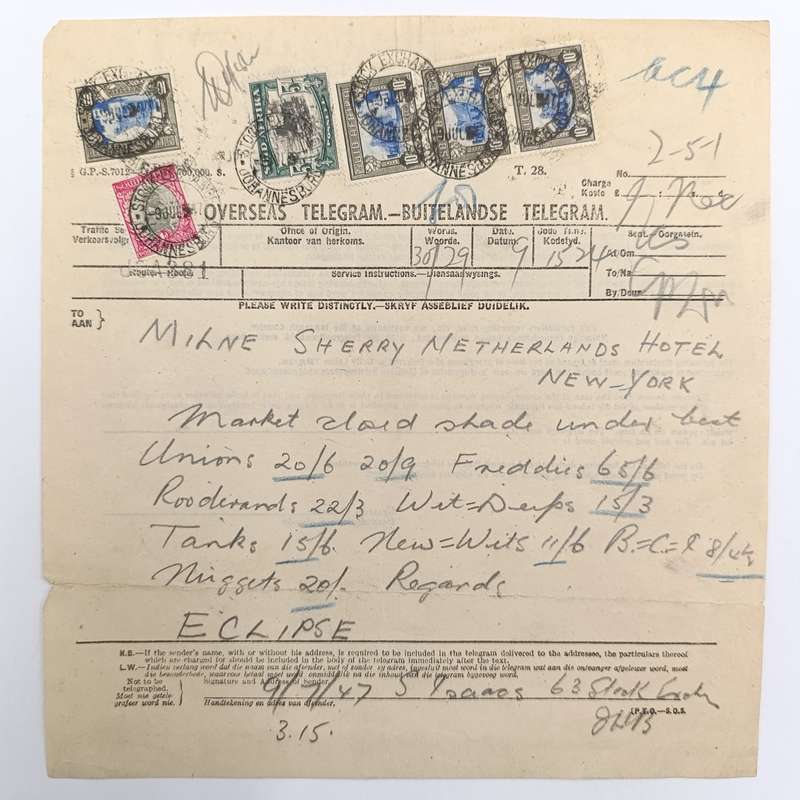 STOCK EXCHANGE JOHANNESBURG
SOUTH AFRICA
BC4
G.P.-S.7012
T. 28.
No.
2-51
Charge
Koste £
OVERSEAS TELEGRAM.—BUITELANDSE TELEGRAM.
Traffic
Verkeersvolgno
Office of Origin.
Kantoor van herkoms.
Words.
Woorde.
30/29
Date.
Datum.
9
Code Time.
Kodetyd.
1524
Sent. Oorgesein.
At/Om
To/Na
By/Deur
Service Instructions.—Diensaanwysings.
PLEASE WRITE DISTINCTLY.—SKRYF ASSEBLIEF DUIDELIK.
TO
AAN
MILNE SHERRY NETHERLANDS HOTEL
NEW=YORK
Market closed shade under best
Unions 20/6 20/9 Freddies 65/6
Rooderands 22/3 Wit=Deeps 15/3
Tanks 15/6 New=Wits 11/6 B.=C.= 8/4½
Nuggets 20/- Regards
ECLIPSE
N.B.—If the sender's name, with or without his address, is required to be included in the telegram delivered to the addressee, the particulars thereof
which are charged for should be included in the body of the telegram immediately after the text.
L.W.—Indien verlang word dat die naam van die afsender, met of sonder sy adres, ingesluit moet word in die telegram wat aan die ontvanger afgelewer word, moet
die besonderhede, waarvoor betaal moet word onmiddellik na die inhoud van die telegram bygevoeg word.
Not to be
telegraphed.
Moet nie getele-
grafeer word nie.
Signature and Address of Sender
Handtekening en adres van afsender.
9/7/47 S Isaacs 63 Stock Exch
JHB
(P.T.O.—S.O.S.
3.15.